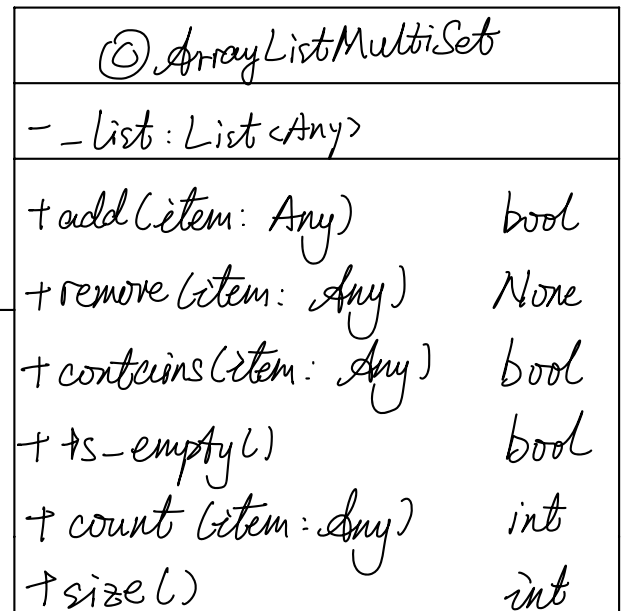 © ArrayListMultiSet
- _list: List<Any>
+ add(item: Any) bool
+ remove(item: Any) None
+ contains(item: Any) bool
+ is_empty() bool
+ count(item: Any) int
+ size() int